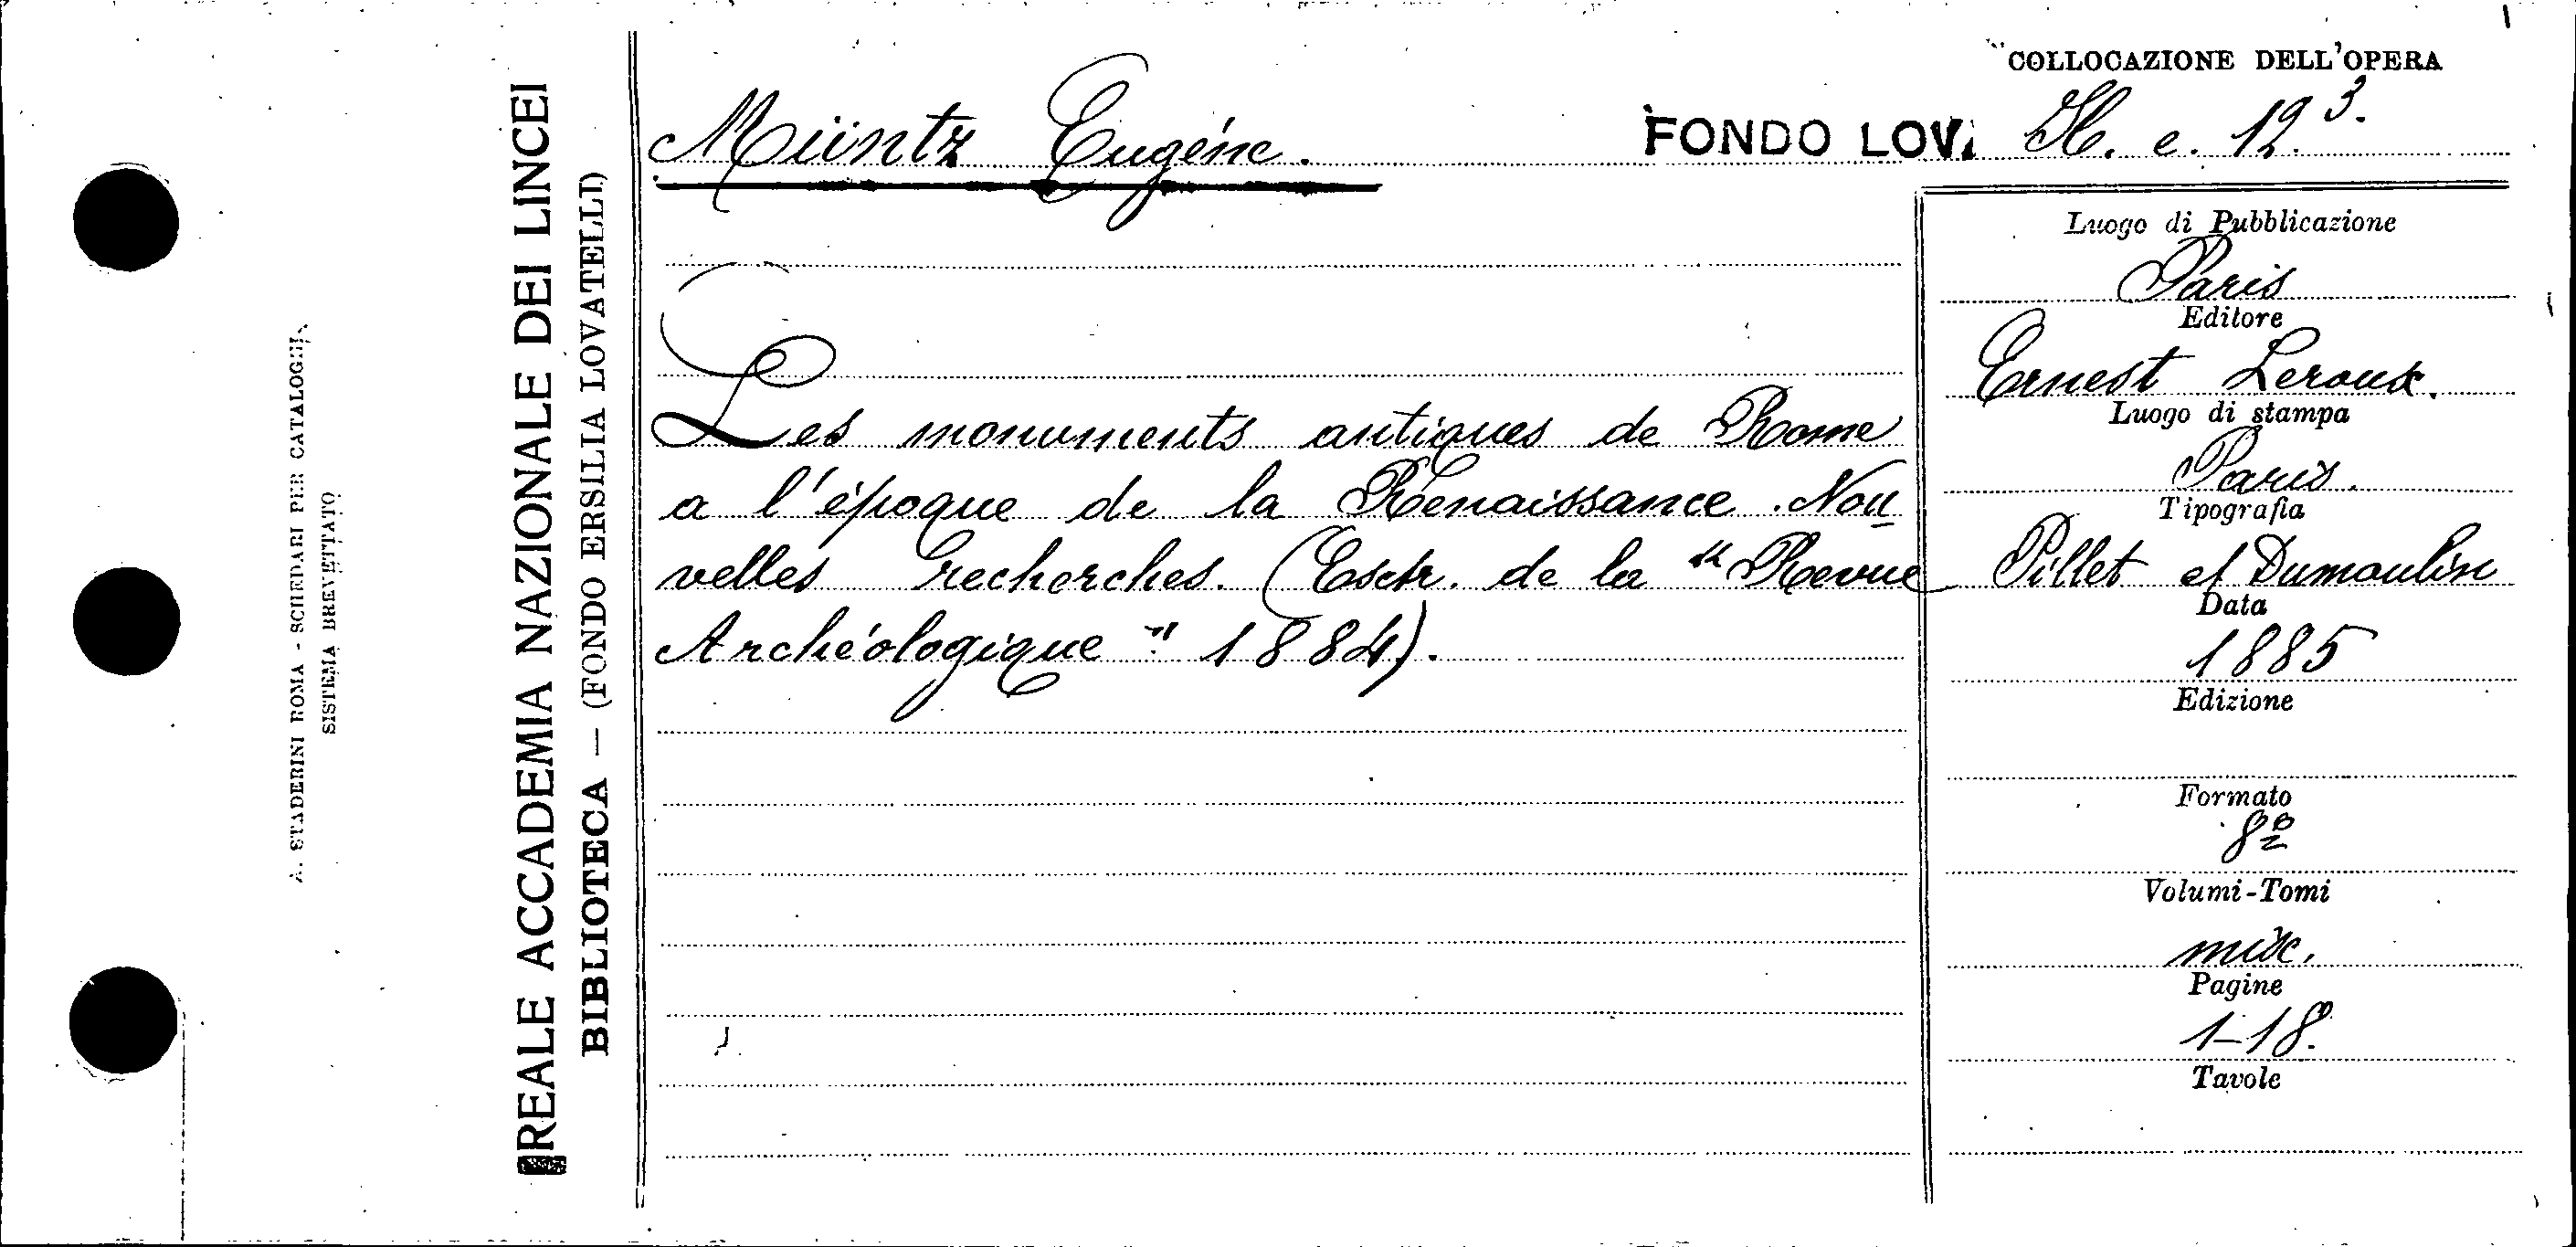 COLLOCAZIONE DELL'OPERA
Müntz Eugéne.
FONDO LOV. H. e. 12.³·
Les monuments antiques de Rome
a l'époque de la Renaissance. Nou
velles recherches. (Extr. de la "Revue
Archéologique" 1884).
Luogo di Pubblicazione
Paris
Editore
Ernest Leroux.
Luogo di stampa
Paris.
Tipografia
Pillet et Dumoulin
Data
1885
Edizione
Formato
8º
Volumi-Tomi
misc.
Pagine
1-18.
Tavole
REALE ACCADEMIA NAZIONALE DEI LINCEI
BIBLIOTECA — (FONDO ERSILIA LOVATELLI)
A. STADERINI ROMA - SCHEDARI PER CATALOGHI
SISTEMA BREVETTATO